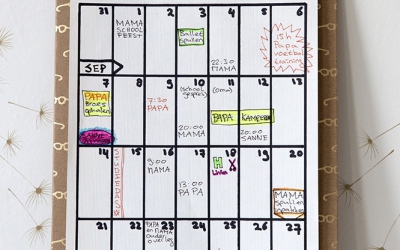 31
1
2
3
4
5
6
MAMA
SCHOOL
FEEST
Ballet
spullen
22:30
MAMA
15h
Papa
voetbal
SEP
7
8
9
10
11
12
13
PAPA
7:30
PAPA
(school
(oma)
20:00
MAMA
PAPA KAMPEREN
20:00
SANNE
14
15
16
17
18
19
20
STUDIEDAG
9:00
MAMA
13:00
PAPA
H
MAMA
spullen
21
22
23
24
25
26
27
PAPA EN
MAMA
ouder